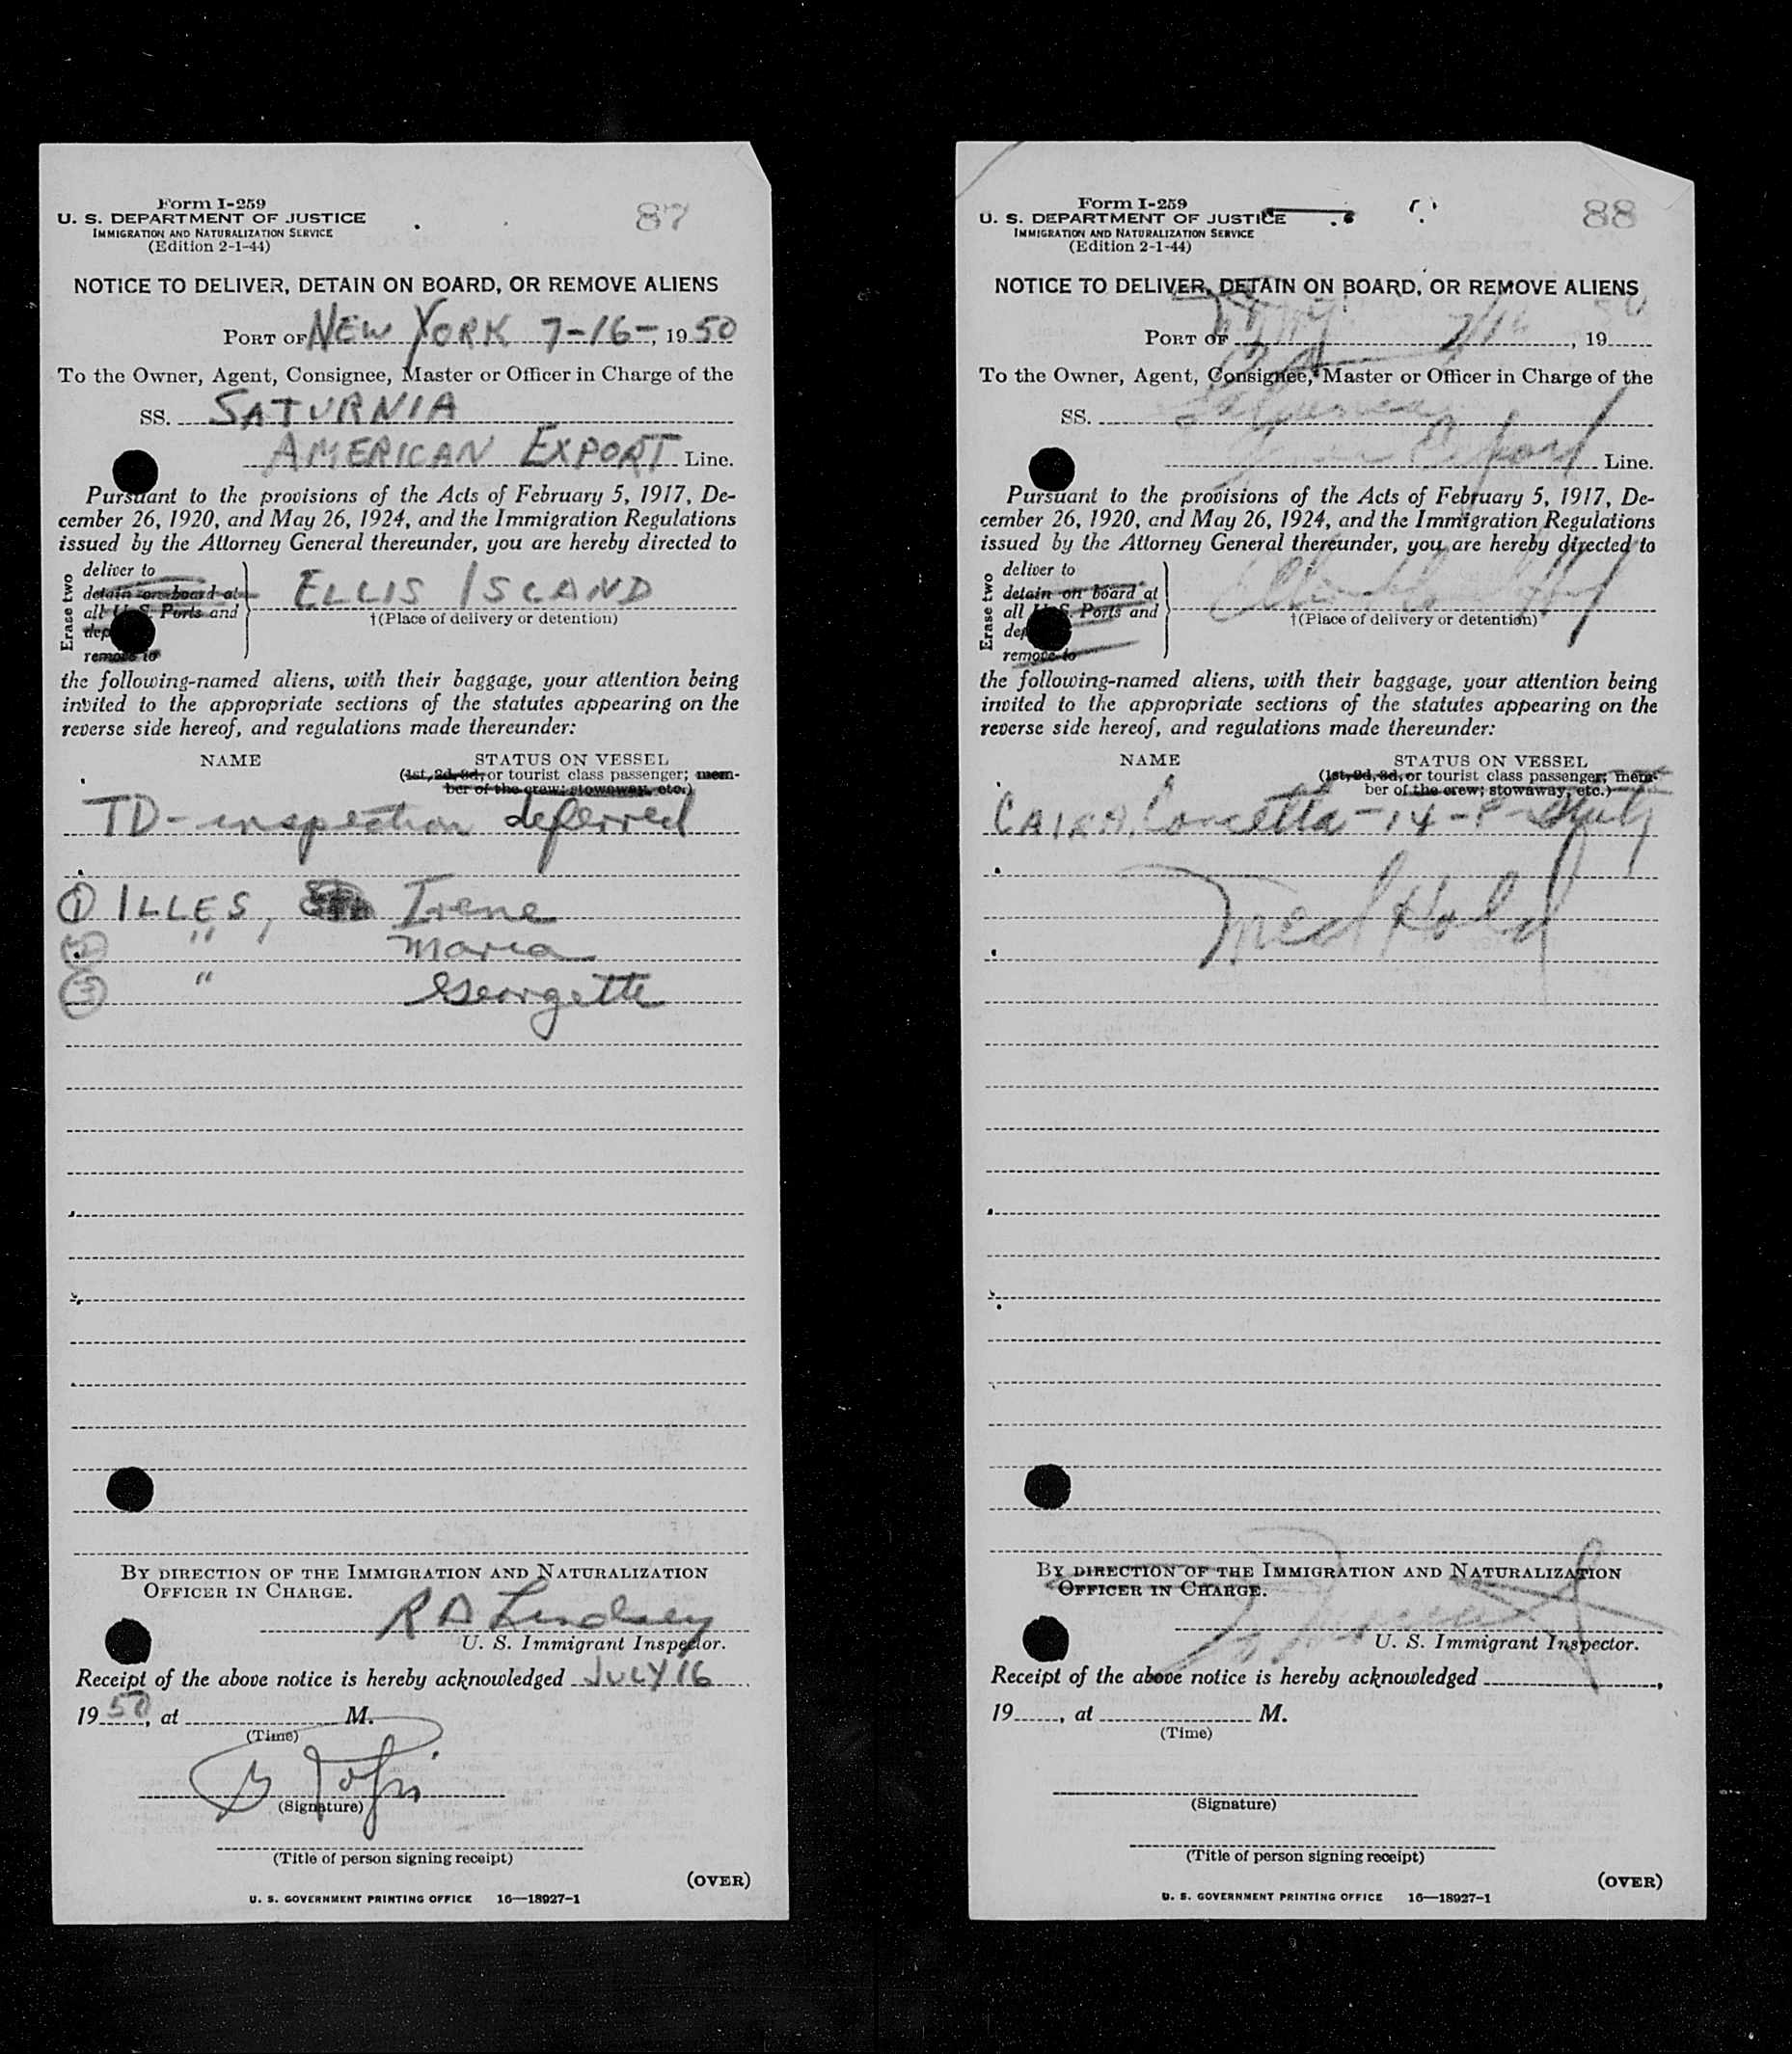 Form I-259
U. S. DEPARTMENT OF JUSTICE
IMMIGRATION AND NATURALIZATION SERVICE
(Edition 2-1-44)
87
NOTICE TO DELIVER, DETAIN ON BOARD, OR REMOVE ALIENS
PORT OF NEW YORK 7-16-, 1950
To the Owner, Agent, Consignee, Master or Officer in Charge of the
SS. SATURNIA
AMERICAN EXPORT Line.
Pursuant to the provisions of the Acts of February 5, 1917, De-
cember 26, 1920, and May 26, 1924, and the Immigration Regulations
issued by the Attorney General thereunder, you are hereby directed to
Erase two
deliver to
detain on board at
all U. S. Ports and
dep
remove to
ELLIS ISLAND
†(Place of delivery or detention)
the following-named aliens, with their baggage, your attention being
invited to the appropriate sections of the statutes appearing on the
reverse side hereof, and regulations made thereunder:
NAME STATUS ON VESSEL
(1st, 2d, 3d, or tourist class passenger; mem-
ber of the crew; stowaway, etc.)
TD - inspection deferred
① ILLES, Irene
② " Maria
③ " Georgette
BY DIRECTION OF THE IMMIGRATION AND NATURALIZATION
OFFICER IN CHARGE.
R A Lindsey
U. S. Immigrant Inspector.
Receipt of the above notice is hereby acknowledged JULY 16
1950, at M.
(Time)
(Signature)
(Title of person signing receipt)
(OVER)
U. S. GOVERNMENT PRINTING OFFICE 16—18927-1
Form I-259
U. S. DEPARTMENT OF JUSTICE
IMMIGRATION AND NATURALIZATION SERVICE
(Edition 2-1-44)
88
NOTICE TO DELIVER, DETAIN ON BOARD, OR REMOVE ALIENS
PORT OF NY 7/16, 19 50
To the Owner, Agent, Consignee, Master or Officer in Charge of the
SS. Saturnia
Amer Export Line.
Pursuant to the provisions of the Acts of February 5, 1917, De-
cember 26, 1920, and May 26, 1924, and the Immigration Regulations
issued by the Attorney General thereunder, you are hereby directed to
Erase two
deliver to
detain on board at
all U. S. Ports and
dep
remove to
Ellis
†(Place of delivery or detention)
the following-named aliens, with their baggage, your attention being
invited to the appropriate sections of the statutes appearing on the
reverse side hereof, and regulations made thereunder:
NAME STATUS ON VESSEL
(1st, 2d, 3d, or tourist class passenger; mem-
ber of the crew; stowaway, etc.)
Concetta - 14 -
Med Hold
BY DIRECTION OF THE IMMIGRATION AND NATURALIZATION
OFFICER IN CHARGE.
U. S. Immigrant Inspector.
Receipt of the above notice is hereby acknowledged ,
19 , at M.
(Time)
(Signature)
(Title of person signing receipt)
(OVER)
U. S. GOVERNMENT PRINTING OFFICE 16—18927-1